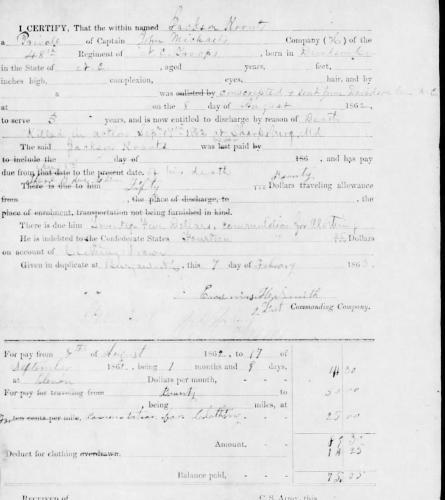 I CERTIFY, That the within named Jackson Koonts
a Private of Captain John Michaels Company (K) of the
48th Regiment of N C Troops, born in Davidson
in the State of N C, aged years, feet,
inches high, complexion, eyes, hair, and by
a was enlisted by conscripted & sent from Davidson N C
at on the 8 day of August 1862,
to serve 3 years, and is now entitled to discharge by reason of Death
Killed in action Sept 17th 1862 at Sharpsburg Md
The said Jackson Koonts was last paid by
to include the day of 186 , and has pay
due from that date to the present date, his death
There is due him Fifty Dollars traveling allowance Bounty
from , the place of discharge, to , the
place of enrolment, transportation not being furnished in kind.
There is due him Twenty Five Dollars, commutation for Clothing
He is indebted to the Confederate States Fourteen Dollars
on account of Clothing drawn
Given in duplicate at this 7 day of February 1863.
Commanding Company.
For pay from 8th of August 1862, to 17 of
September 1862, being 1 months and 9 days,
at Eleven Dollars per month,
For pay for traveling from Bounty to 50 00
, being miles, at
For ten cents per mile, commutation for Clothing 25 00
Amount,
Deduct for clothing overdrawn.
Balance paid,
RECEIVED OF C. S. ARMY,